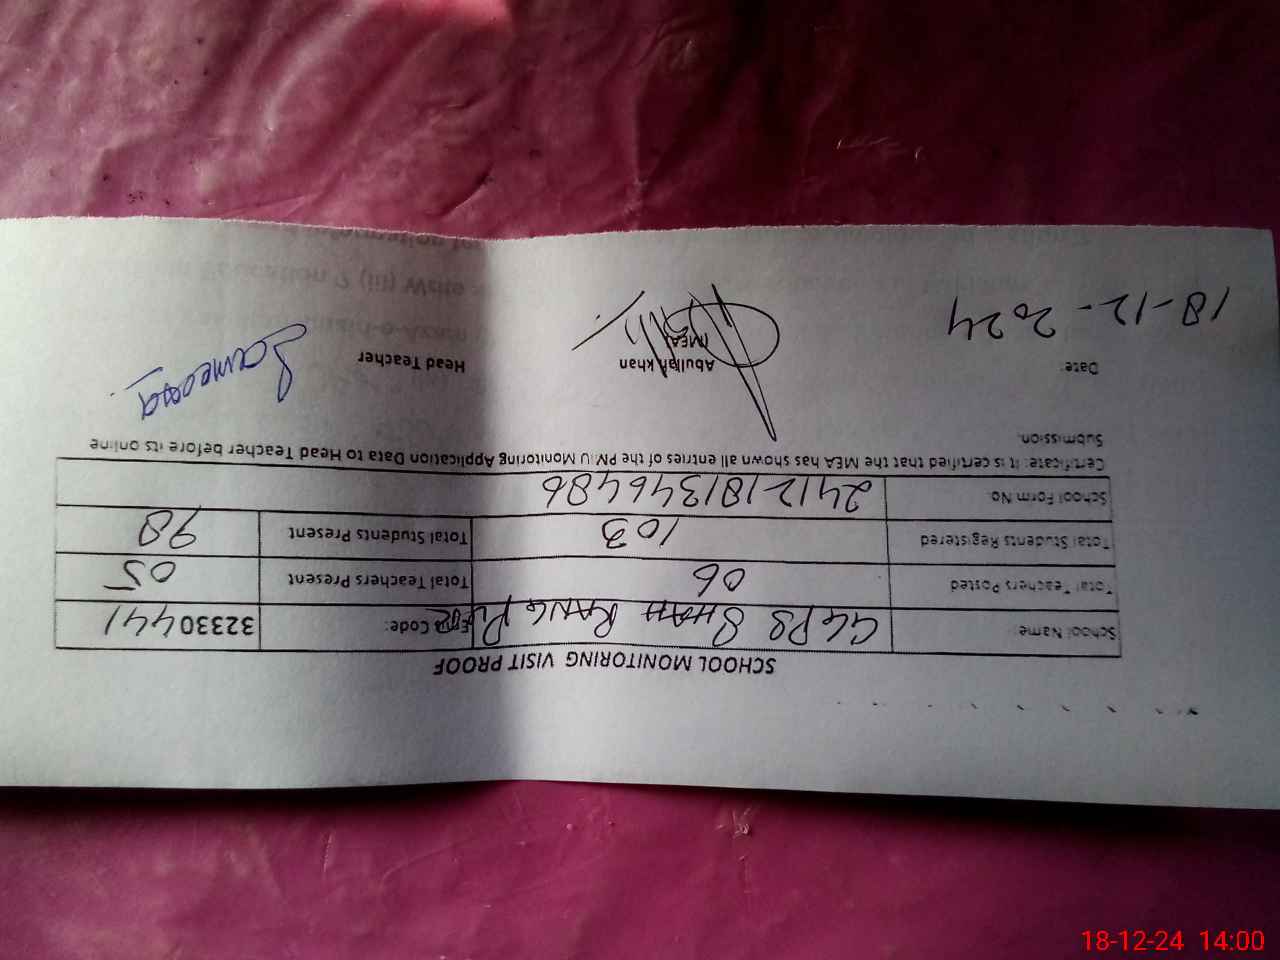 SCHOOL MONITORING VISIT PROOF
School Name: GGPS SHAH RANG PUR Code: 32330441
Total Teachers Posted 06 Total Teachers Present 05
Total Students Registered 103 Total Students Present 98
School Form No. 2412181346486
Certificate: It is certified that the MEA has shown all entries of the PMIU Monitoring Application Data to Head Teacher before its online
Submission.
Date: Abullah khan Head Teacher
(MEA)
18-12-2024
18-12-24 14:00